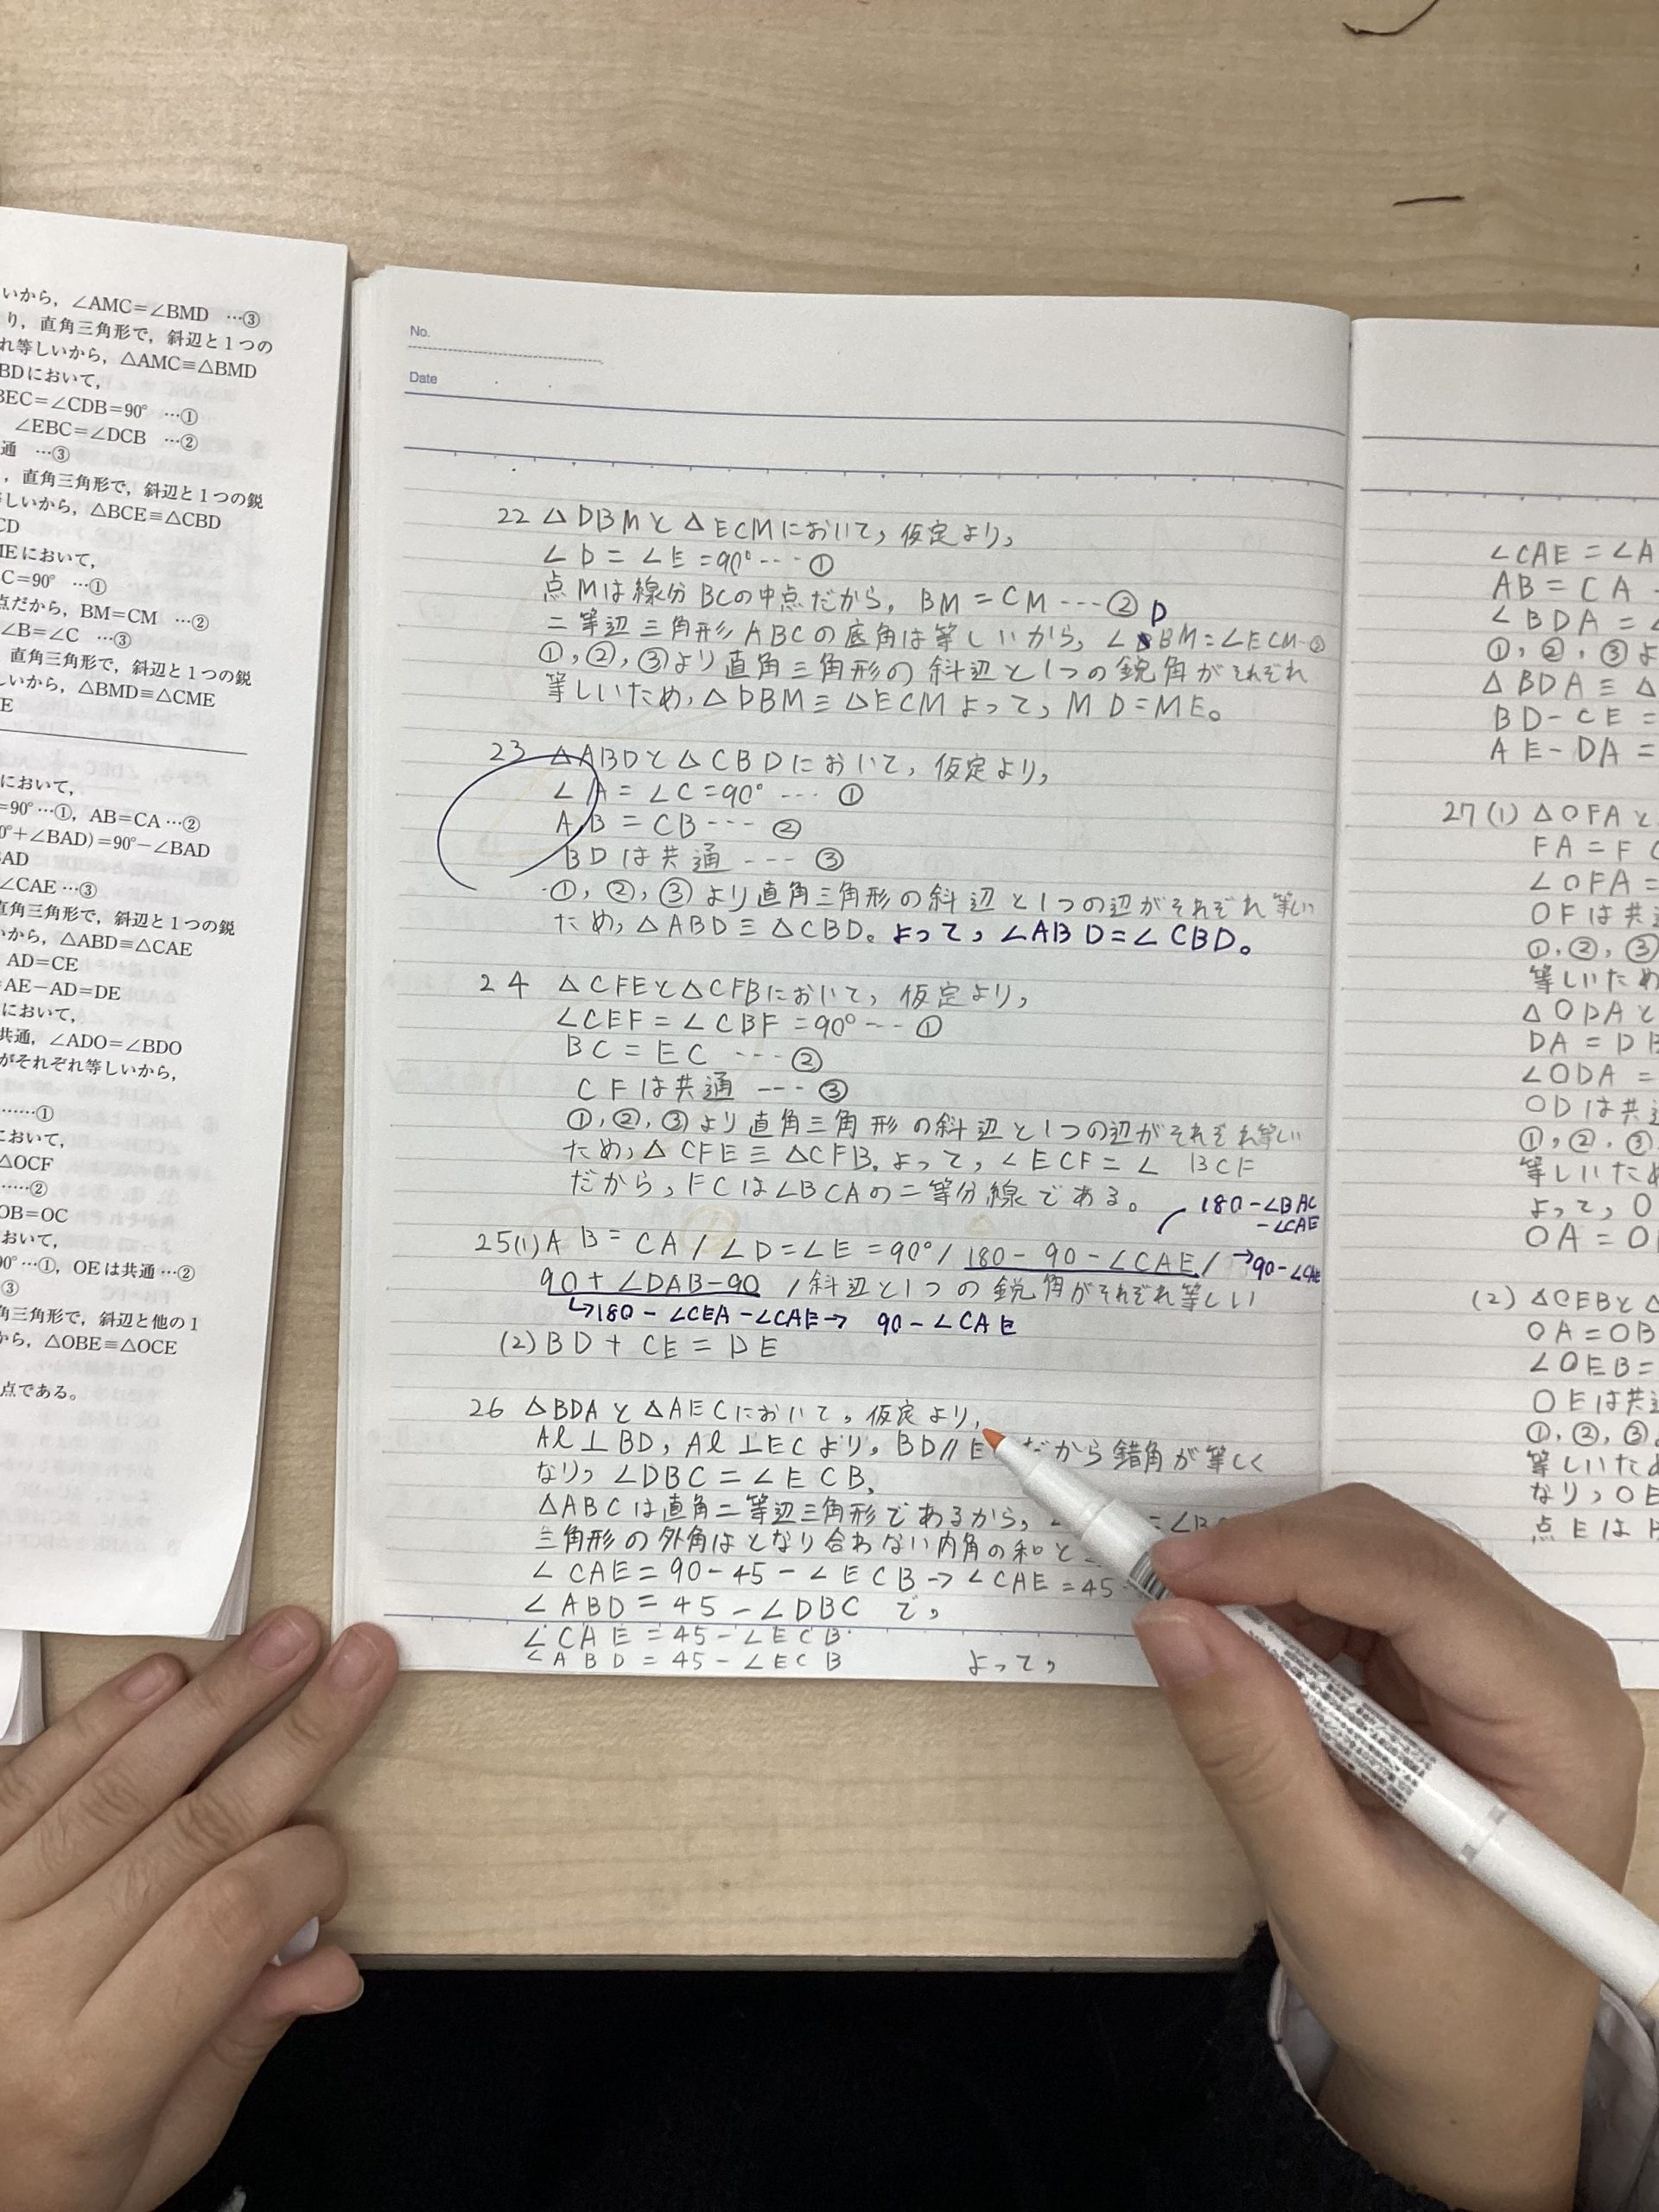 いから，∠AMC＝∠BMD …③
り，直角三角形で，斜辺と1つの
れ等しいから，△AMC≡△BMD
BDにおいて，
BEC＝∠CDB＝90° …①
∠EBC＝∠DCB …②
通 …③
，直角三角形で，斜辺と1つの鋭
しいから，△BCE≡△CBD
CD
MEにおいて，
C＝90° …①
点だから，BM＝CM …②
∠B＝∠C …③
直角三角形で，斜辺と1つの鋭
しいから，△BMD≡△CME
E
において，
＝90°…①，AB＝CA…②
0°＋∠BAD)＝90°－∠BAD
BAD
∠CAE…③
直角三角形で，斜辺と1つの鋭
いから，△ABD≡△CAE
AD＝CE
＝AE－AD＝DE
において，
共通，∠ADO＝∠BDO
がそれぞれ等しいから，
……①
において，
△OCF
……②
OB＝OC
おいて，
90°…①，OEは共通…②
③
角三角形で，斜辺と他の1
から，△OBE≡△OCE
点である。
No.
Date
22 △DBMと△ECMにおいて，仮定より，
∠D＝∠E＝90°…①
点Mは線分BCの中点だから，BM＝CM…②
D
二等辺三角形ABCの底角は等しいから，∠BM＝∠ECM…③
①，②，③より直角三角形の斜辺と1つの鋭角がそれぞれ
等しいため，△DBM≡△ECMよって，MD＝ME。
23 △ABDと△CBDにおいて，仮定より，
∠A＝∠C＝90°…①
AB＝CB…②
BDは共通…③
①，②，③より直角三角形の斜辺と1つの辺がそれぞれ等しい
ため，△ABD≡△CBD。よって，∠ABD＝∠CBD。
24 △CFEと△CFBにおいて，仮定より，
∠CEF＝∠CBF＝90°…①
BC＝EC…②
CFは共通…③
①，②，③より直角三角形の斜辺と1つの辺がそれぞれ等しい
ため，△CFE≡△CFB。よって，∠ECF＝∠BCF
だから，FCは∠BCAの二等分線である。
180－∠BAC
－∠CAE
25(1)AB＝CA/∠D＝∠E＝90°/180－90－∠CAE/→90－∠CAE
90＋∠DAB－90/斜辺と1つの鋭角がそれぞれ等しい
↳180－∠CEA－∠CAE→90－∠CAE
(2)BD＋CE＝DE
26 △BDAと△AECにおいて，仮定より，
Aℓ⊥BD，Aℓ⊥ECより，BD//E だから錯角が等しく
なり，∠DBC＝∠ECB。
△ABCは直角二等辺三角形であるから，∠ ＝∠B
三角形の外角はとなり合わない内角の和と
∠CAE＝90－45－∠ECB→∠CAE＝45
∠ABD＝45－∠DBC で，
∠CAE＝45－∠ECB
∠ABD＝45－∠ECB よって，
∠CAE＝∠A
AB＝CA
∠BDA＝
①，②，③よ
△BDA≡△
BD－CE＝
AE－DA＝
27(1)△OFAと
FA＝F
∠OFA＝
OFは共通
①，②，③
等しいため
△ODAと
DA＝DB
∠ODA＝
ODは共通
①，②，③
等しいため
よって，O
OA＝O
(2)△OEBと△
OA＝OB
∠OEB＝
OEは共通
①，②，③
等しいため
なり，OE
点Eは